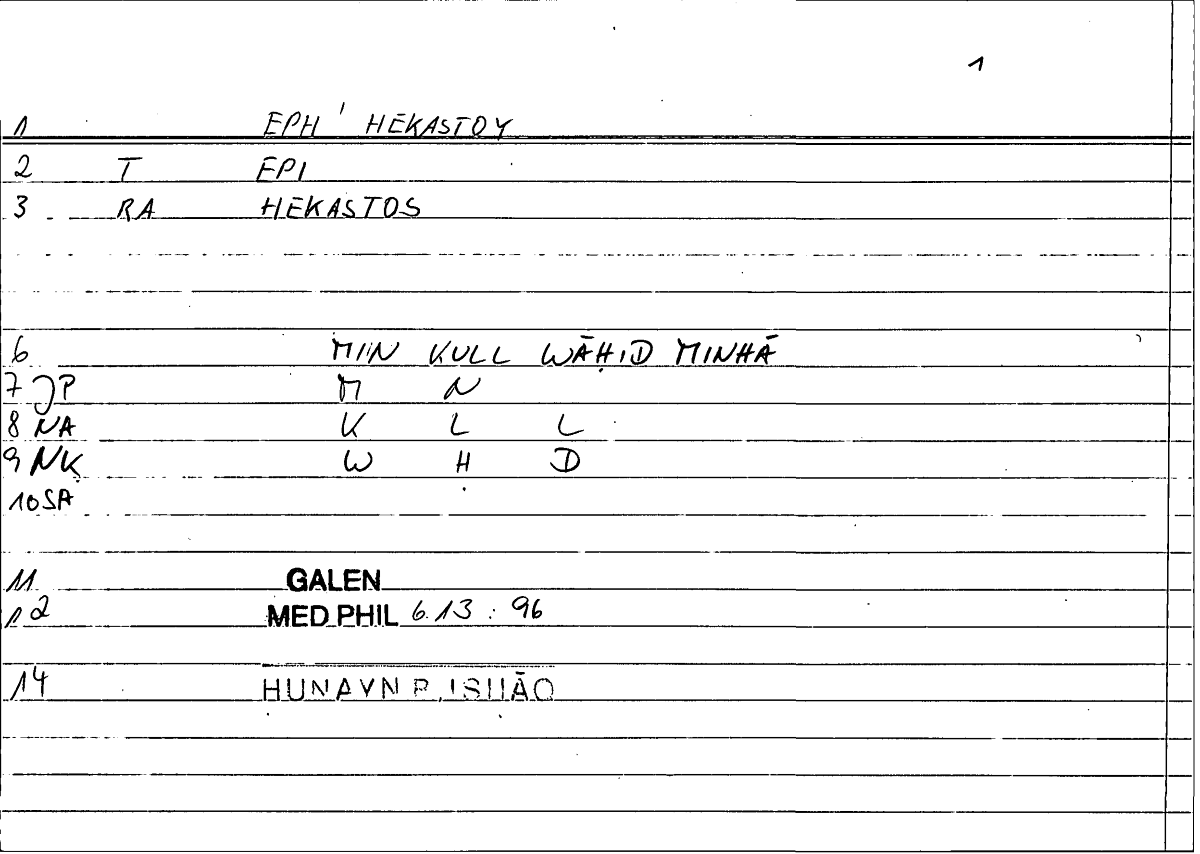 1
1 EPH ' HEKASTOY
2 T EPI
3 RA HEKASTOS
6 MIN KULL WĀḤID MINHĀ
7 JP M N
8 NA K L L
9 NK W Ḥ D
10 SA
11 GALEN
12 MED PHIL 6.13 : 96
14 HUNAYN B. ISḤĀQ